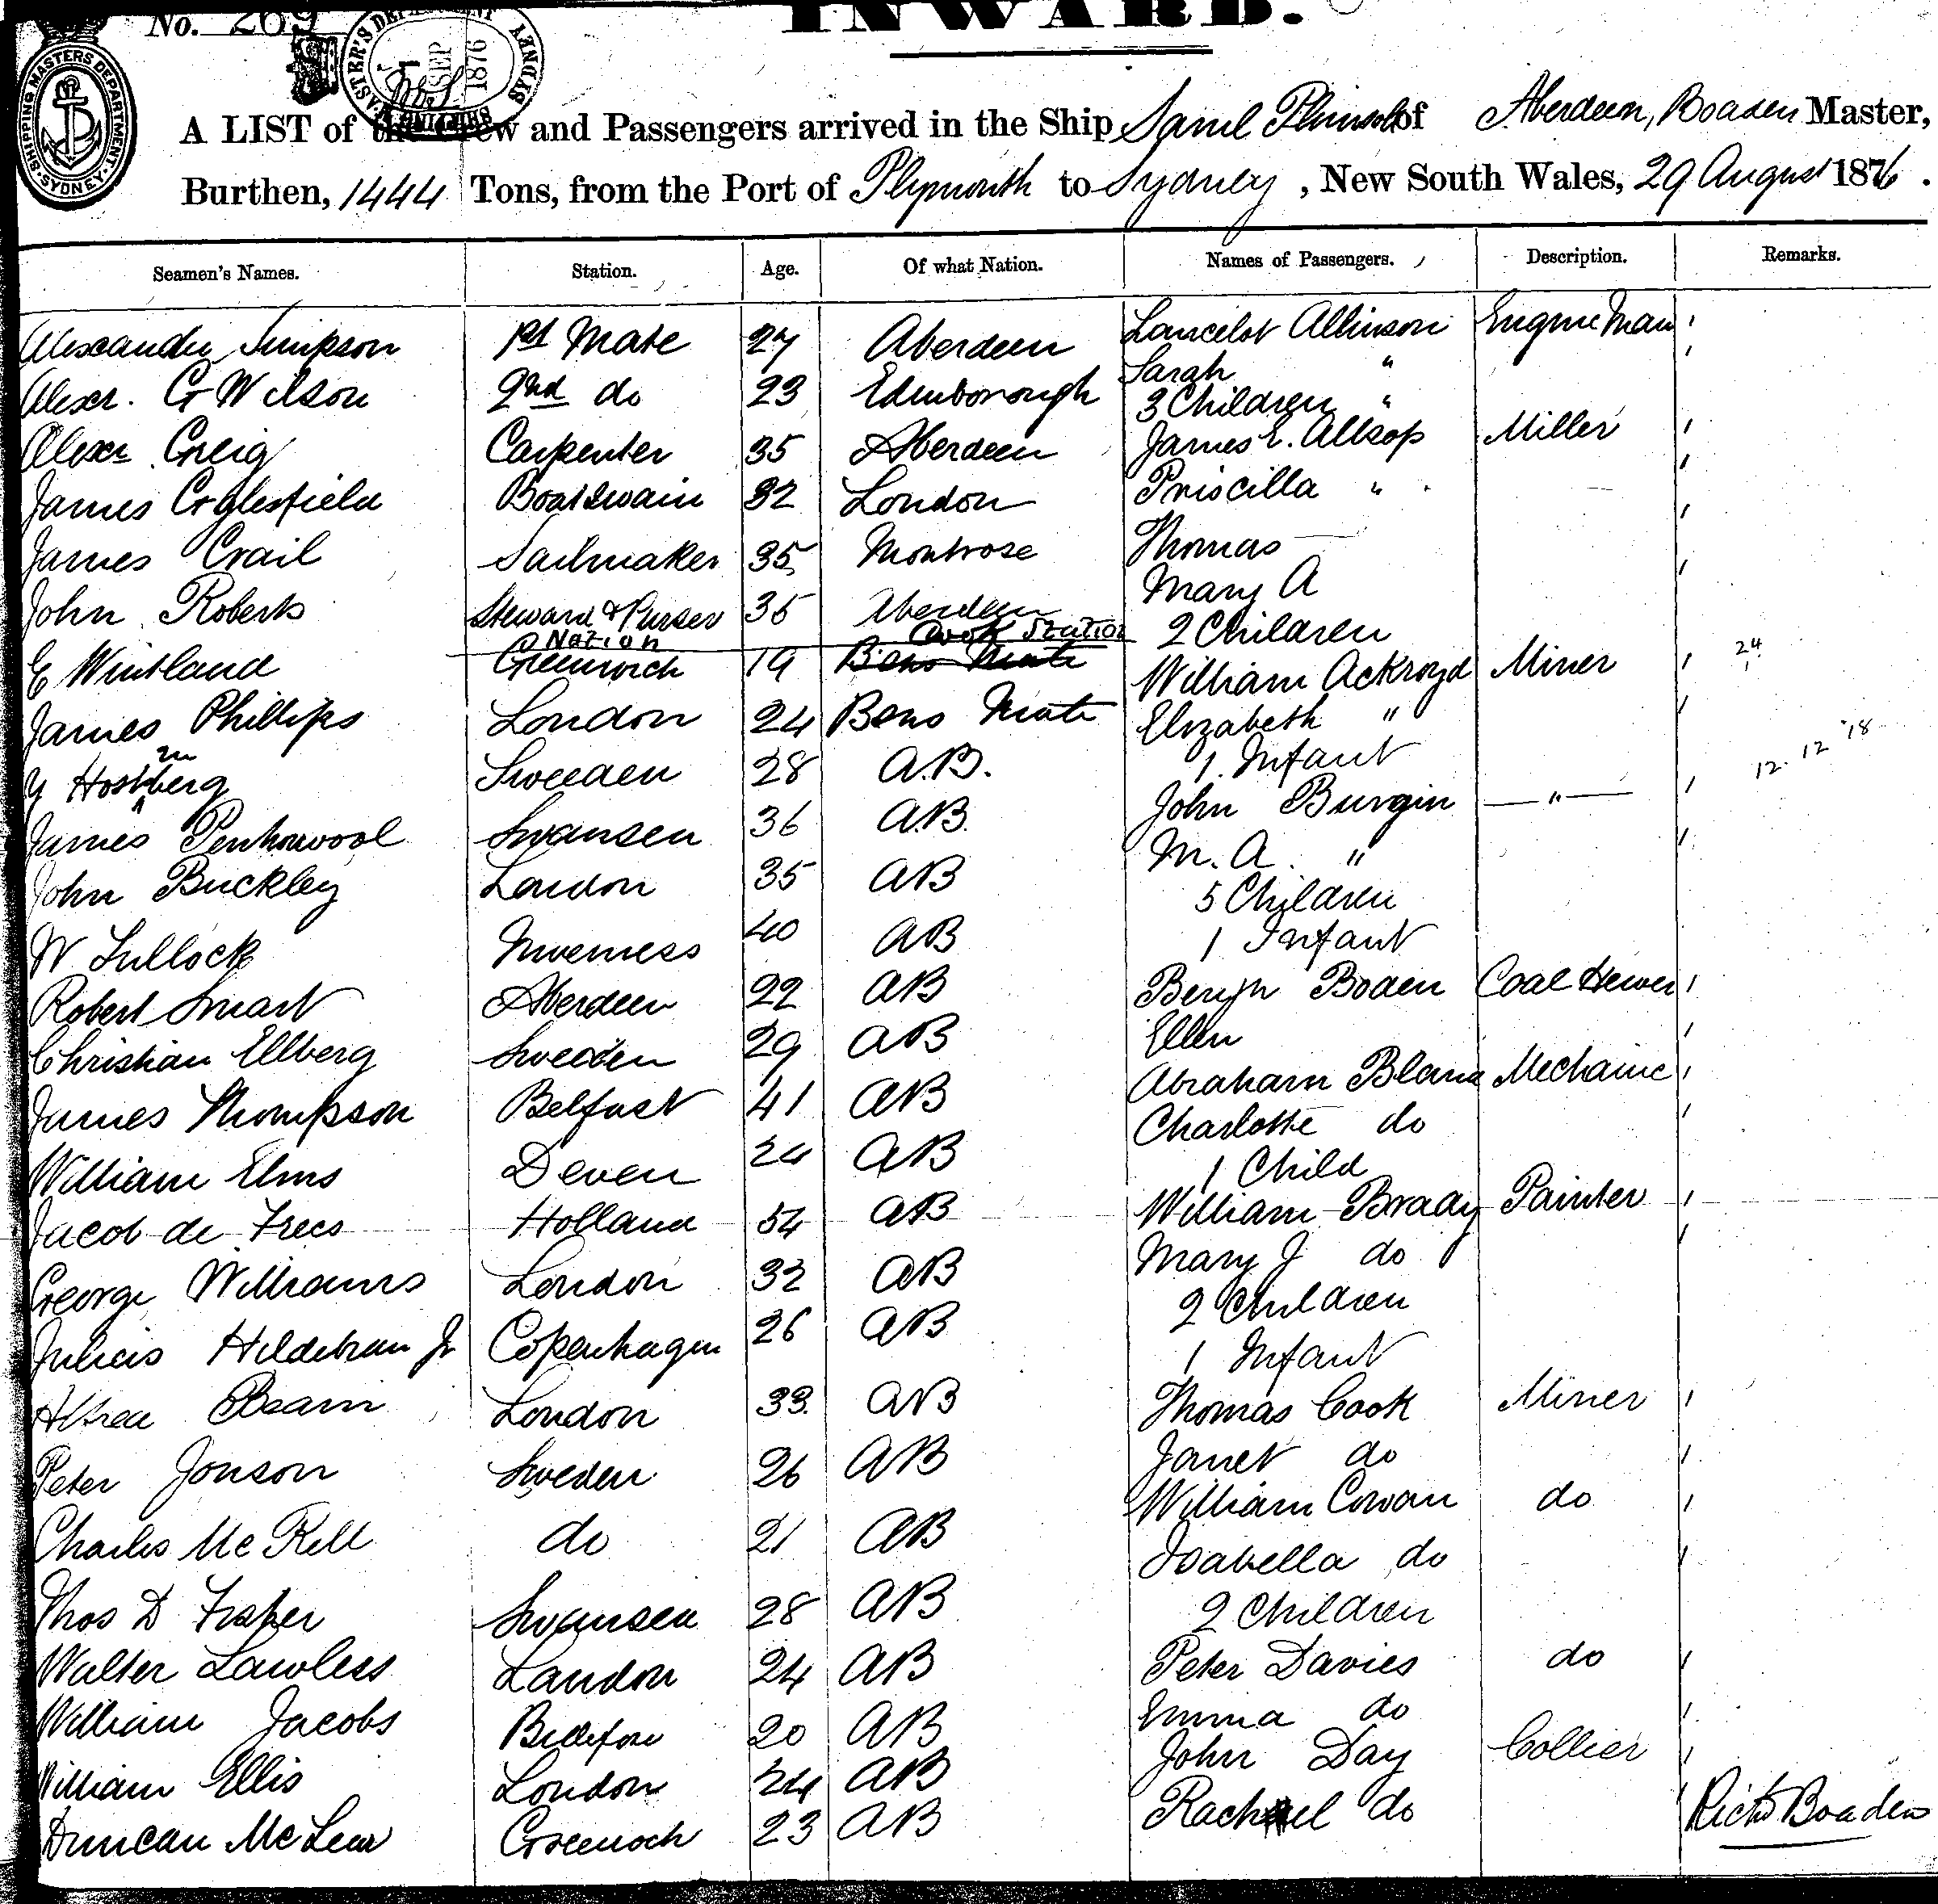 No. 269
INWARD.
SHIPPING MASTERS DEPARTMENT SYDNEY
SEP 1876
A LIST of the Crew and Passengers arrived in the Ship Saml Plimsoll of Aberdeen, Boaden Master,
Burthen, 1444 Tons, from the Port of Plymouth to Sydney, New South Wales, 29 August 1876.
Seamen's Names. Station. Age. Of what Nation. Names of Passengers. Description. Remarks.
Alexander Simpson 1st Mate 27 Aberdeen Lancelot Allinson Engine Man
Sarah "
Alexr. G Wilson 2nd do 23 Edinborough 3 Children "
Alexr Greig Carpenter 35 Aberdeen James E. Allsop Miller
James Coglesfield Boatswain 32 London Priscilla "
James Crail Sailmaker 35 Montrose Thomas
Mary A
John Roberts Steward & Purser 35 Aberdeen 2 Children
Nation Cook Station
E Wintland Greenwich 19 Bons Mate William Ackroyd Miner 24
James Phillips London 24 Bons Mate Elizabeth "
1 Infant 12. 12 '18
Y Hostberg Sweeden 28 A.B. John Burgin "
James Swansea 36 A.B. M. A. "
John Buckley London 35 AB 5 Children
W Tullock Inverness 40 AB 1 Infant
Robert Smart Aberdeen 22 AB Benjn Boden Coal Hewer
Christian Ellberg Sweeden 29 AB Ellen
James Thompson Belfast 41 AB Abraham Bland Mechanic
Charlotte do
William Elms Deven 24 AB 1 Child
Jacob de Frees Holland 54 AB William Brady Painter
Mary J do
George Williams London 32 AB 2 Children
Julius Hildebran Jr Copenhagen 26 AB 1 Infant
Alfred Beam London 33 AB Thomas Cook Miner
Janet do
Peter Jonson Sweden 26 AB William Cowan do
Charles Mc Rell do 21 AB Isabella do
Thos D Fraper Swansea 28 AB 2 Children
Walter Lawless London 24 AB Peter Davies do
William Jacobs 20 AB Emma do
William Ellis London 24 AB John Day Collier
Duncan McLean Greenock 23 AB Rachael do Richd Boaden